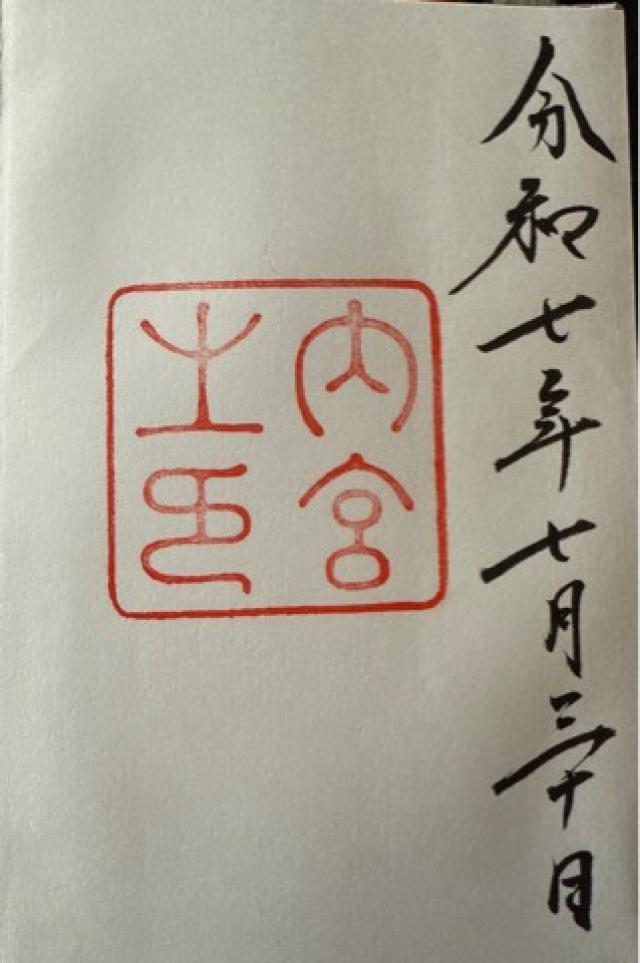 令和七年七月三十日
内宮
之印